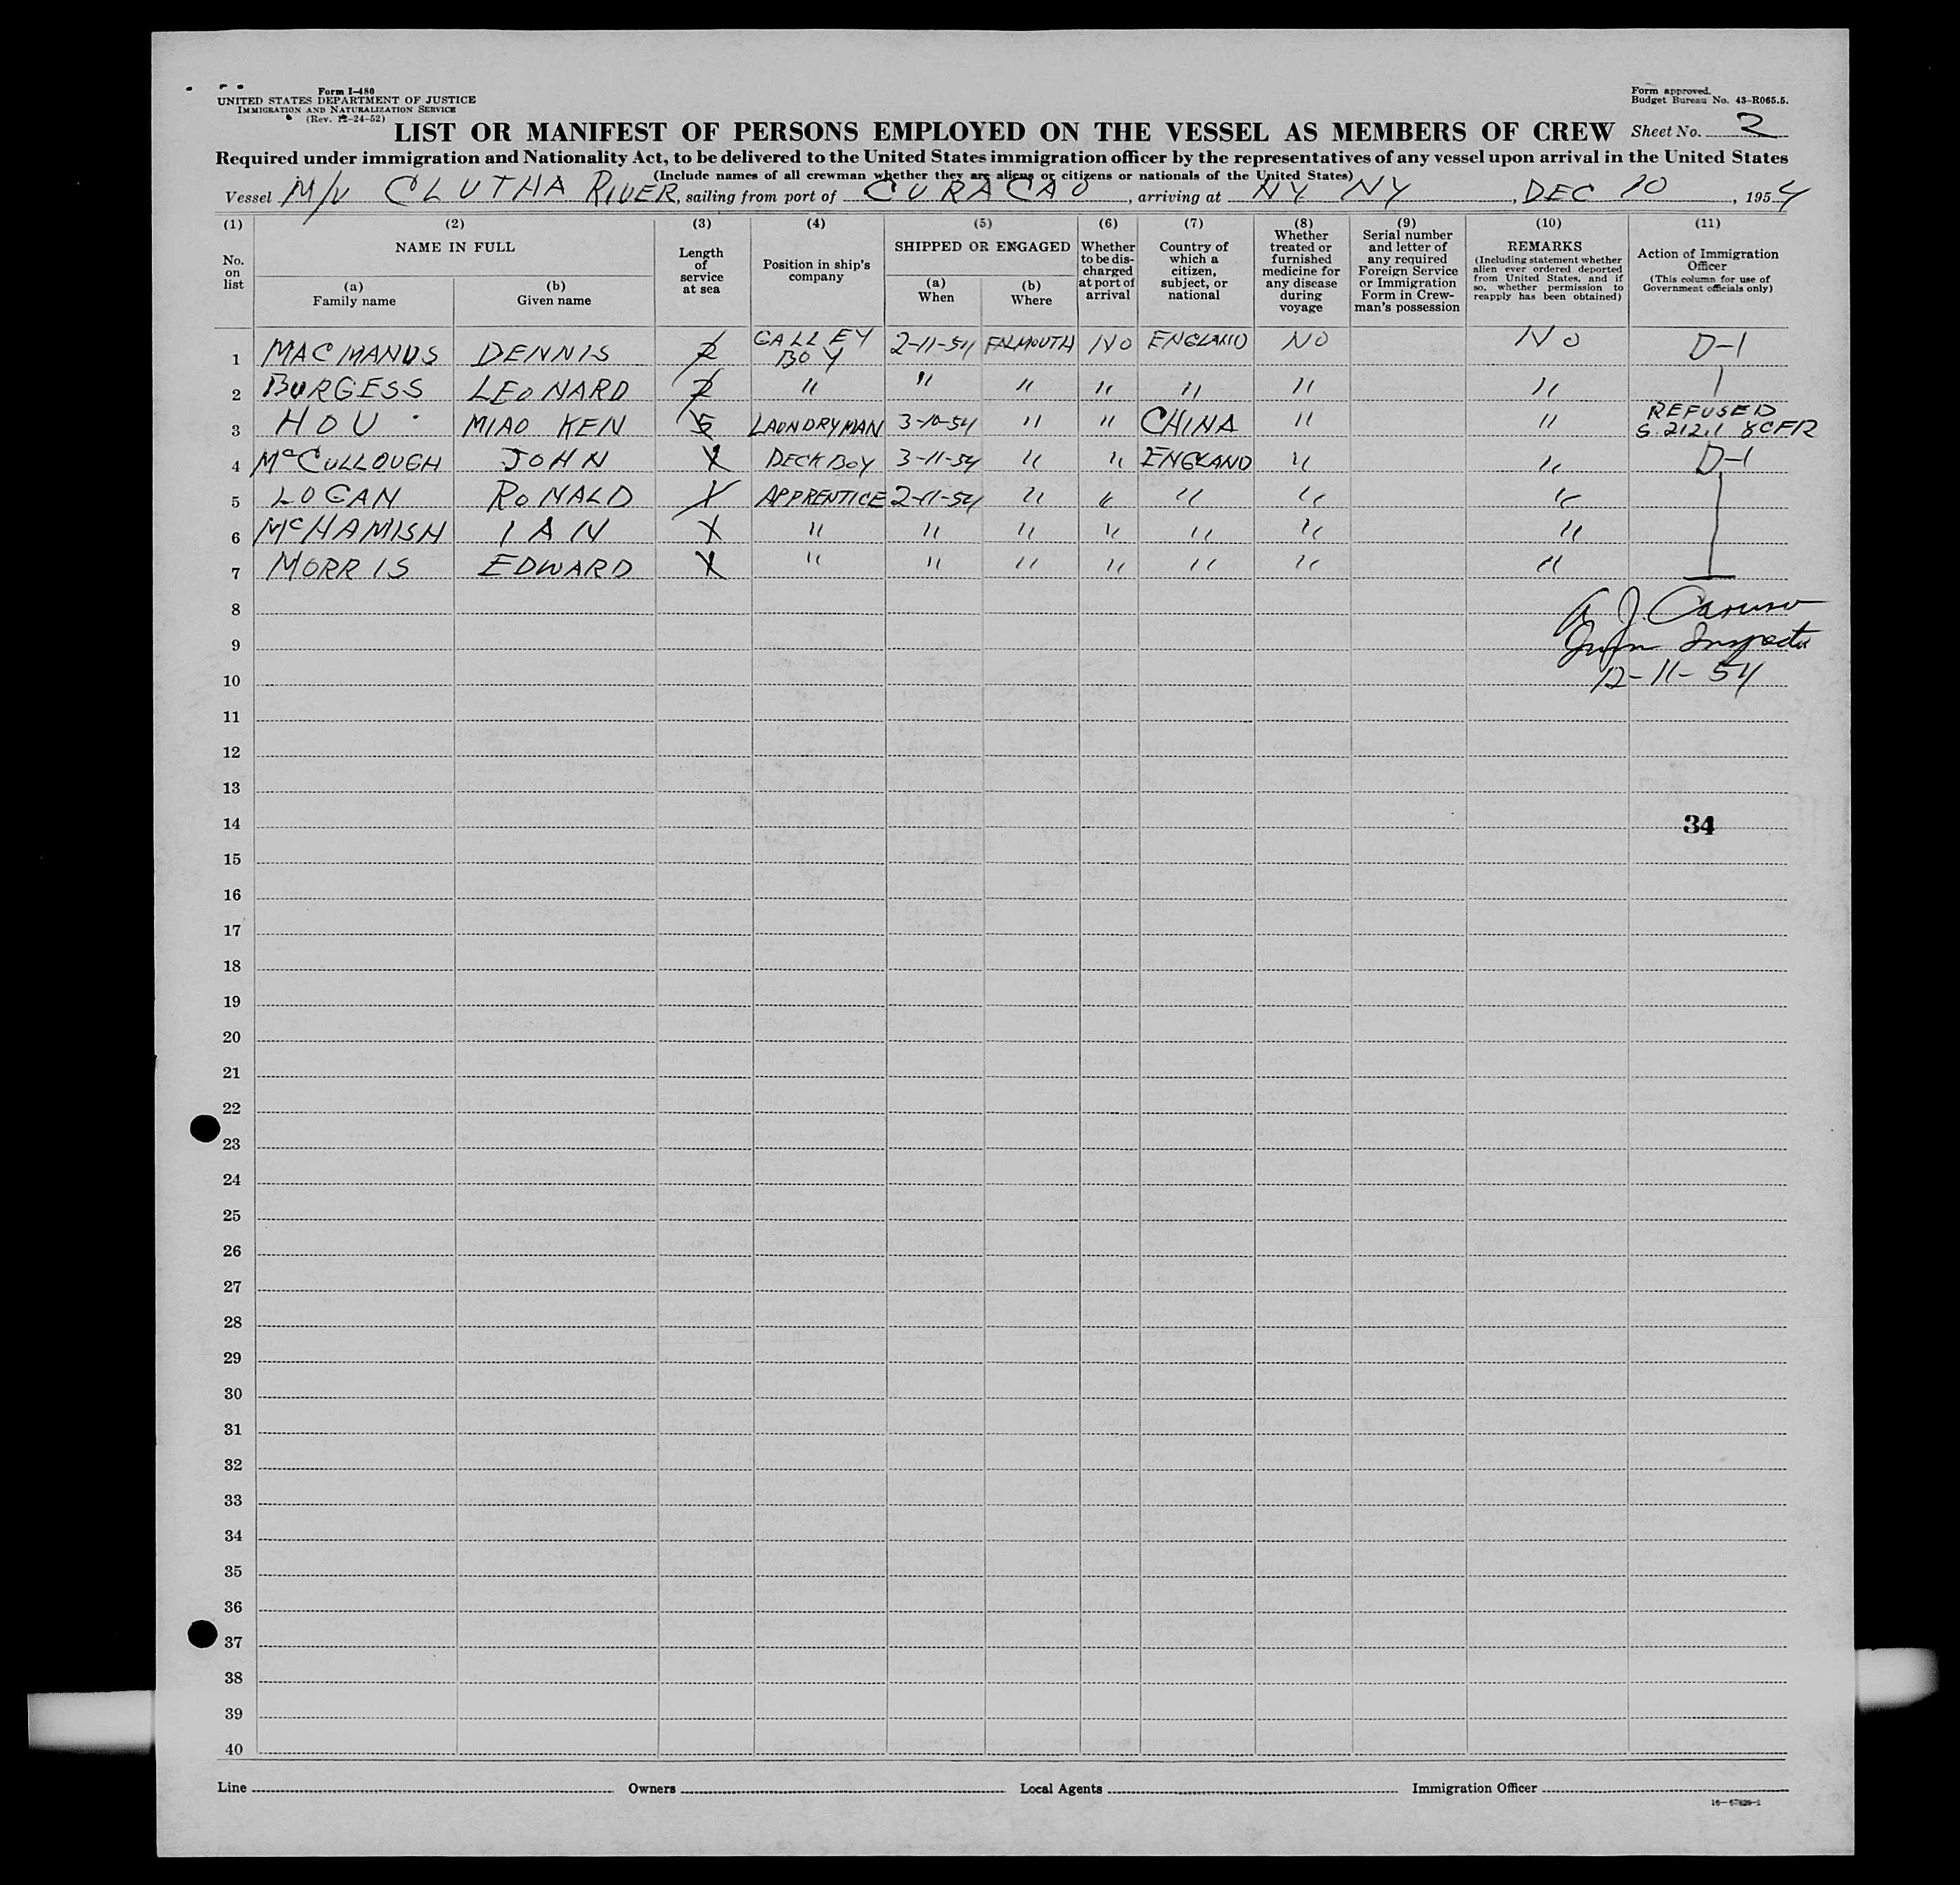 Form I-480
UNITED STATES DEPARTMENT OF JUSTICE
IMMIGRATION AND NATURALIZATION SERVICE
(Rev. 12-24-52)
Form approved.
Budget Bureau No. 43-R065.5.
LIST OR MANIFEST OF PERSONS EMPLOYED ON THE VESSEL AS MEMBERS OF CREW Sheet No. 2
Required under immigration and Nationality Act, to be delivered to the United States immigration officer by the representatives of any vessel upon arrival in the United States
(Include names of all crewman whether they are aliens or citizens or nationals of the United States)
Vessel M/V CLUTHA RIVER, sailing from port of CURACAO, arriving at NY NY, DEC 10, 1954
(1) No. on list
(2) NAME IN FULL
(a) Family name
(b) Given name
(3) Length of service at sea
(4) Position in ship's company
(5) SHIPPED OR ENGAGED
(a) When
(b) Where
(6) Whether to be discharged at port of arrival
(7) Country of which a citizen, subject, or national
(8) Whether treated or furnished medicine for any disease during voyage
(9) Serial number and letter of any required Foreign Service or Immigration Form in Crewman's possession
(10) REMARKS (Including statement whether alien ever ordered deported from United States, and if so, whether permission to reapply has been obtained)
(11) Action of Immigration Officer (This column for use of Government officials only)
1 MACMANUS DENNIS 2 GALLEY BOY 2-11-54 FALMOUTH NO ENGLAND NO NO D-1
2 BURGESS LEONARD 2 " " " " " " "
3 HOU MIAO KEN 5 LAUNDRYMAN 3-10-54 " " CHINA " " REFUSED S. 212.1 8CFR
4 McCULLOUGH JOHN DECK BOY 3-11-54 " " ENGLAND " " D-1
5 LOGAN RONALD APPRENTICE 2-11-54 " " " " "
6 McHAMISH IAN " " " " " " "
7 MORRIS EDWARD " " " " " " "
8
A J. Caruso
9
Imm Inspector
10
12-11-54
11
12
13
14 34
15
16
17
18
19
20
21
22
23
24
25
26
27
28
29
30
31
32
33
34
35
36
37
38
39
40
Line Owners Local Agents Immigration Officer
16—67829-1